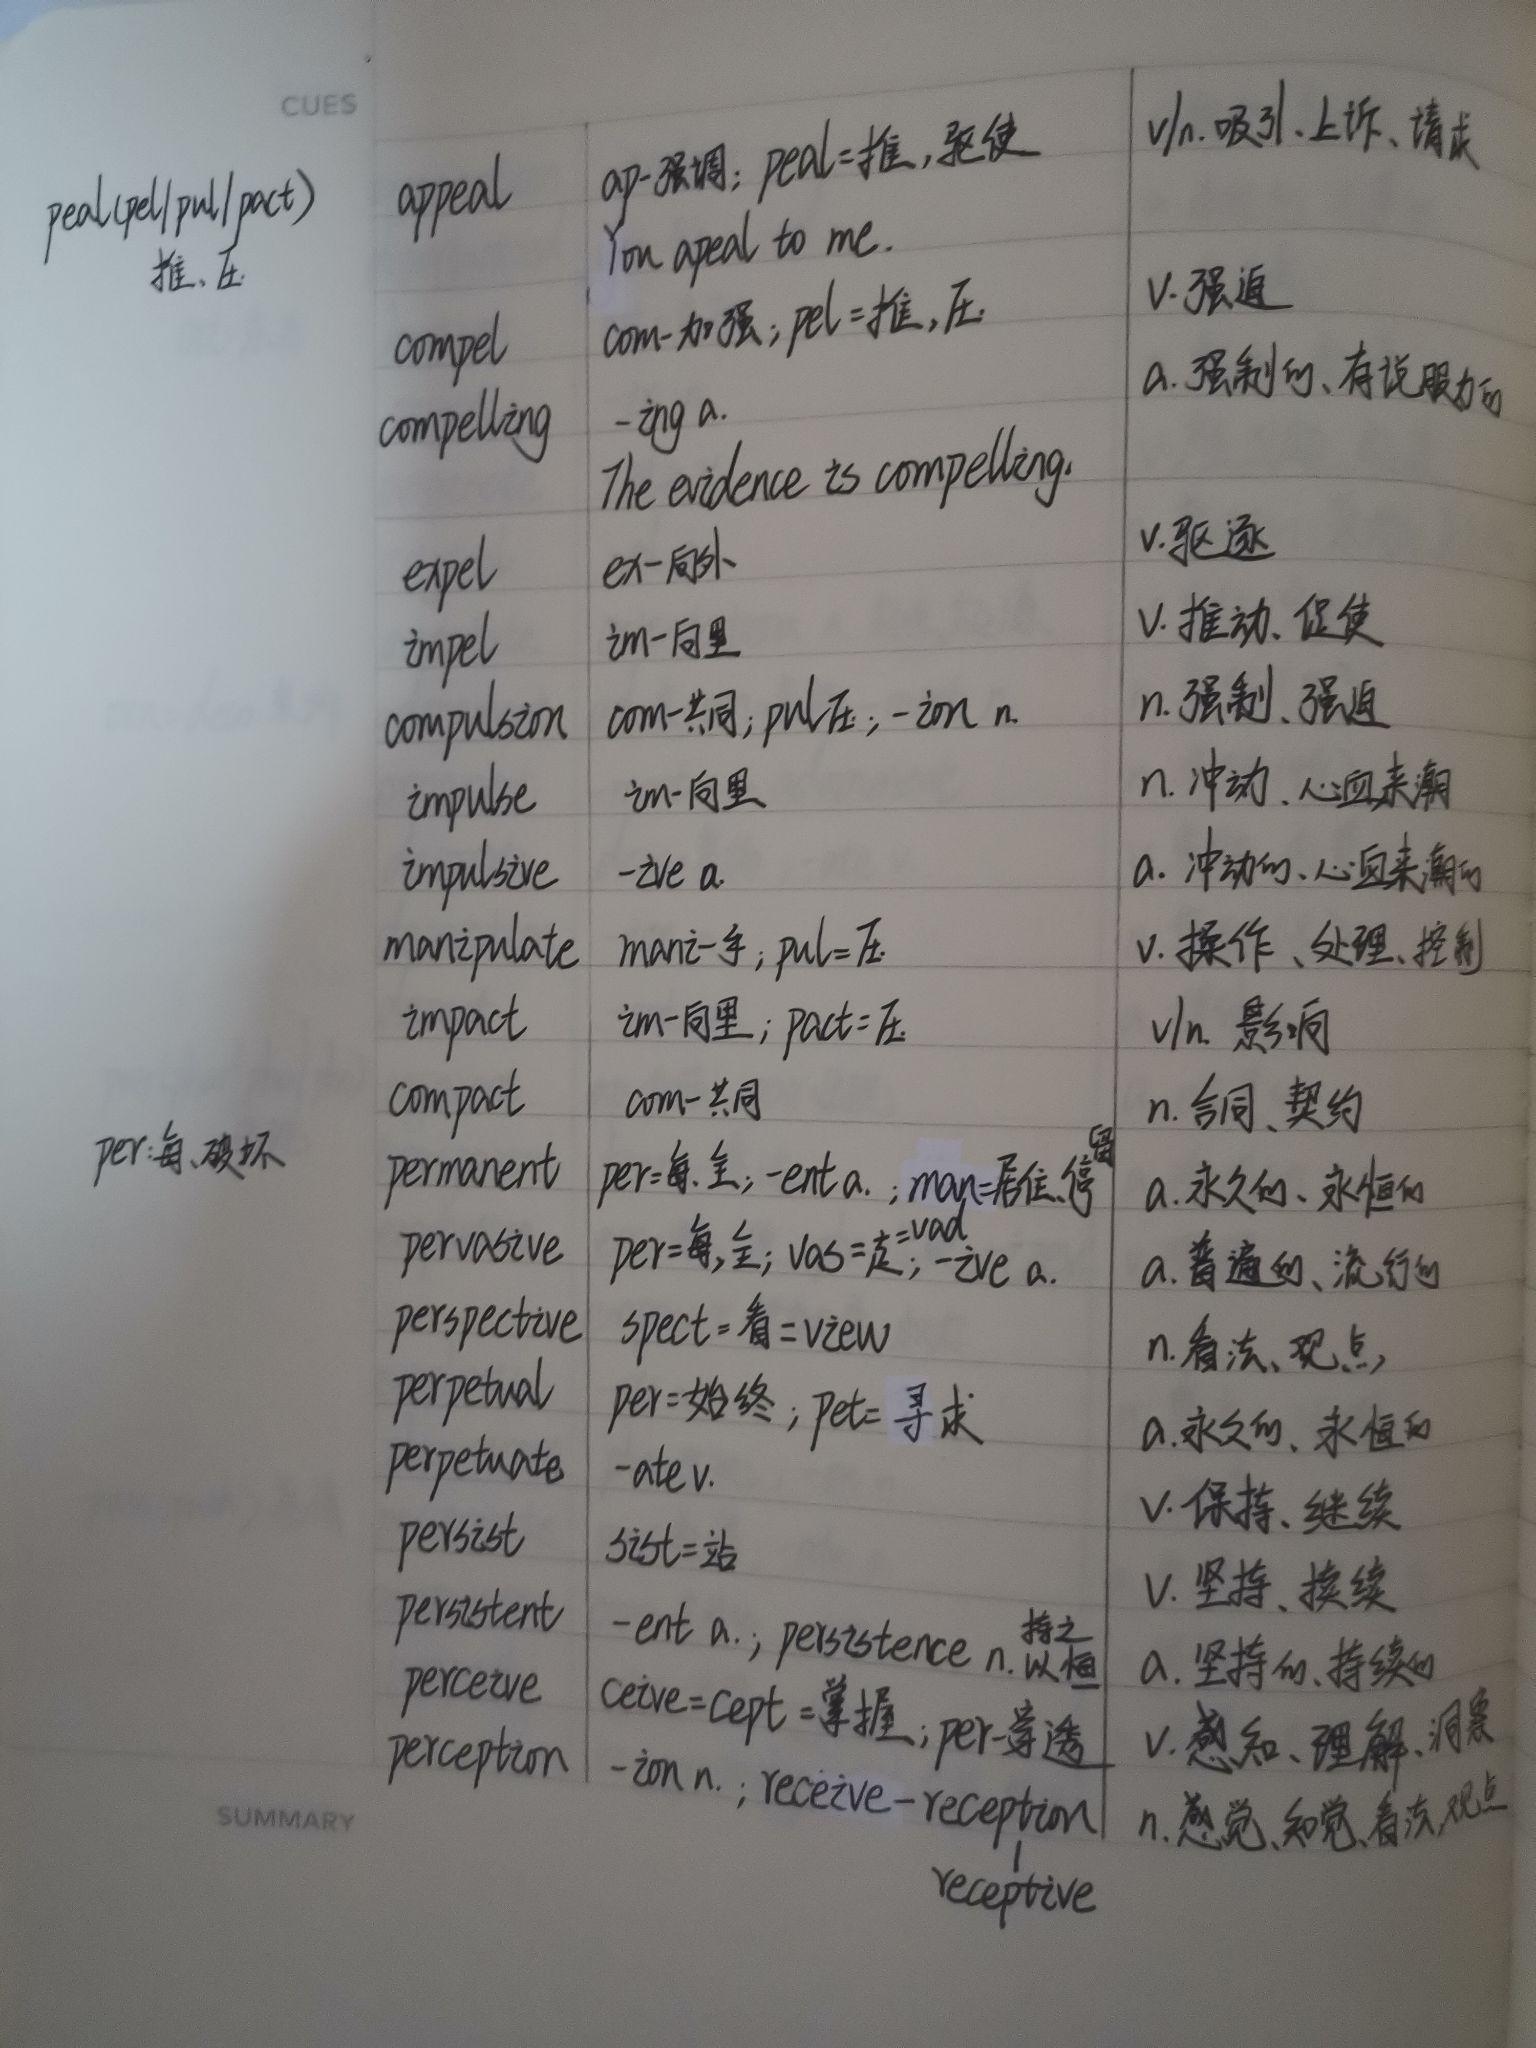 CUES
peal(pel/pul/pact)
推、压
appeal ap-强调; peal=推,驱使 v/n. 吸引、上诉、请求
You apeal to me.
compel com-加强; pel=推,压 v. 强迫
compelling -ing a. a. 强制的、有说服力的
The evidence is compelling.
expel ex-向外 v. 驱逐
impel im-向里 v. 推动、促使
compulsion com-共同; pul压; -ion n. n. 强制、强迫
impulse im-向里 n. 冲动、心血来潮
impulsive -ive a. a. 冲动的、心血来潮的
manipulate mani-手; pul=压 v. 操作、处理、控制
impact im-向里; pact=压 v/n. 影响
compact com-共同 n. 合同、契约
per:每、破坏
permanent per=每、全; -ent a. ; man=居住、停留 a. 永久的、永恒的
pervasive per=每,全; vas=走=vad; -ive a. a. 普遍的、流行的
perspective spect=看=view n. 看法、观点,
perpetual per=始终; pet=寻求 a. 永久的、永恒的
perpetuate -ate v. v. 保持、继续
persist sist=站 v. 坚持、持续
persistent -ent a. ; persistence n. 持之以恒 a. 坚持的、持续的
perceive ceive=cept=掌握; per-穿透 v. 感知、理解、洞察
perception -ion n. ; receive-reception n. 感觉、知觉、看法,观点
receptive
SUMMARY